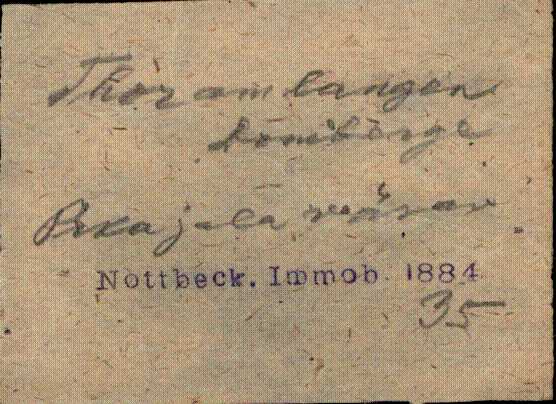 Thor am langen
Domberge
Pika jala värav
Nottbeck. Immob 1884
35